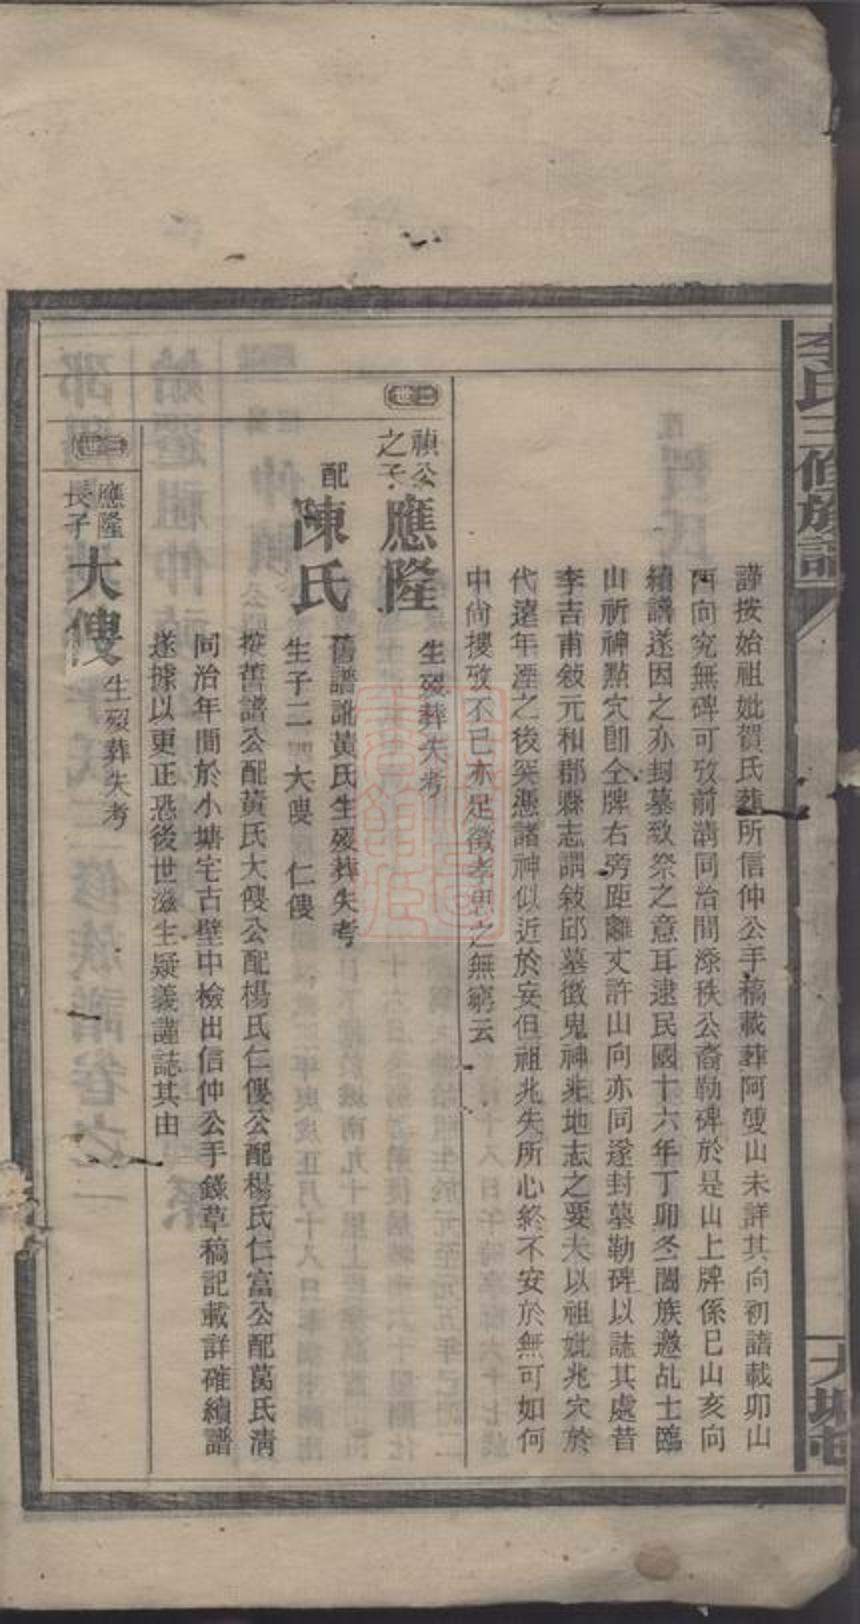 李氏三修族譜
大塘宅
謹按始祖妣賀氏葬所信仲公手稿載葬阿䕫山未詳其向初譜載卯山
酉向究無碑可攷前淸同治間漛秩公裔勒碑於是山上牌係巳山亥向
續譜遂因之亦封墓致祭之意耳逮民國十六年丁卯冬闔族邀乩士臨
山祈神點穴卽仝牌右旁距離丈許山向亦同遂封墓勒碑以誌其處昔
李吉甫敍元和郡縣志謂敍邱墓徵鬼神非地志之要夫以祖妣兆穴於
代遠年湮之後奚憑諸神似近於妄但祖兆失所心終不安於無可如何
中尙摟攷不已亦足徵孝思之無窮云
二世
禎公之子
應隆
生歿葬失考
配
陳氏
舊譜訛黃氏生歿葬失考
生子二 大㑯 仁㑯
按舊譜公配黃氏大㑯公配楊氏仁㑯公配楊氏仁富公配葛氏淸
同治年間於小塘宅古壁中檢出信仲公手錄草稿記載詳確續譜
遂據以更正恐後世滋生疑義謹誌其由
三世
應隆長子
大㑯
生歿葬失考